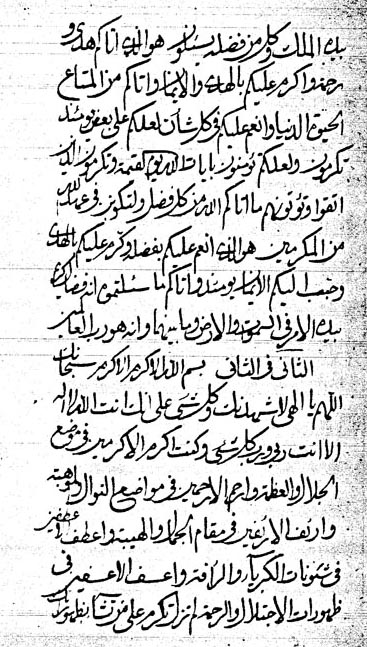 بيده الملك وكل من فضله يسئلون هو الذي اتاكم هدى و
رحمة واكرم عليكم بالهدى والايمان واتاكم من المتاع
الحيوة الدنيا وانعم عليكم في كل شأن لعلكم على بعض يومئذ
تكرمون ولعلكم تؤمنون بايات الله يوم وتكرمون الذين
اتقوا وتؤتونهم ما اتاكم الله من كل فضل ولتكونن في عند الله
من المكرمين هو الذي انعم عليكم بفضله وكرم عليكم بالهدى
وحبب اليكم الايمان يومئذ واتاكم ما سئلتموه انه فضال كريم
بيده الامر في السموات والارض وما بينهما وانه هو رب العالمين
الثاني في الثاني بسم الله الاكرم الاكرم سبحانك
اللهم يا الهي لاشهدنك وكل شيء على انك انت الله لا اله
الا انت رب ورب كل شيء وكنت اكرم الاكرمين في موضع
الجلال والعظمة وارحم الارحمين في مواضع النوال والموهبة
وارئف الارئفين في مقام الجمال والهيبة واعطف الاعطفين
في شئونات الكبرياء والرأفة واعسف الاعسفين في
ظهورات الاجتلال والرحمة لم تزل تكرم على من تشاء بظهورك